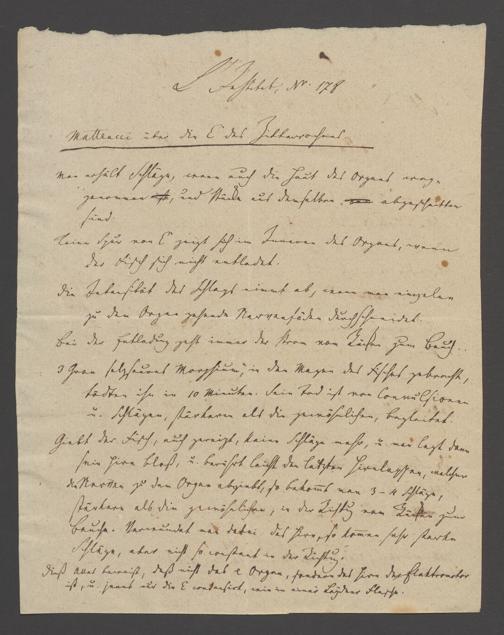 L'Institut, Nr. 178
Matteucci über die E des Zitterrochens
Man erhält Schläge, wenn auch die Haut des Organs wegge-
nommen, und Stücke aus demselben abgeschnitten
sind.
Keine Spur von E zeigt sich im Innern des Organs, wenn
der Fisch sich nicht entladet.
Die Intensität des Schlags nimmt ab, wenn man einzelne
zu dem Organ gehende Nervenfäden durchschneidet.
Bei der Entladung geht immer der Strom vom Rücken zum Bauch.
3 Gran salzsaures Morphium, in den Magen des Fisches gebracht,
tödten ihn in 10 Minuten. Sein Tod ist von Convulsionen
u. Schlägen, stärkern als die gewöhnlichen, begleitet.
Giebt der Fisch, auch gereizt, keine Schläge mehr, u. man legt dann
sein Hirn bloß, u. berührt leicht den letzten Hirnlappen, welcher
die Nerven zu dem Organ abgiebt, so bekommt man 3-4 Schläge,
stärkere als die gewöhnlichen, in der Richtung vom Rücken zum
Bauche. Verwundet man dabei das Hirn, so kommen sehr starke
Schläge, aber nicht so constant in der Richtung.
Dieß alles beweist, daß nicht das Organ, sondern das Hirn der Elektromotor
ist, u. jenes nur die E condensirt, wie in einer Leydner Flasche.